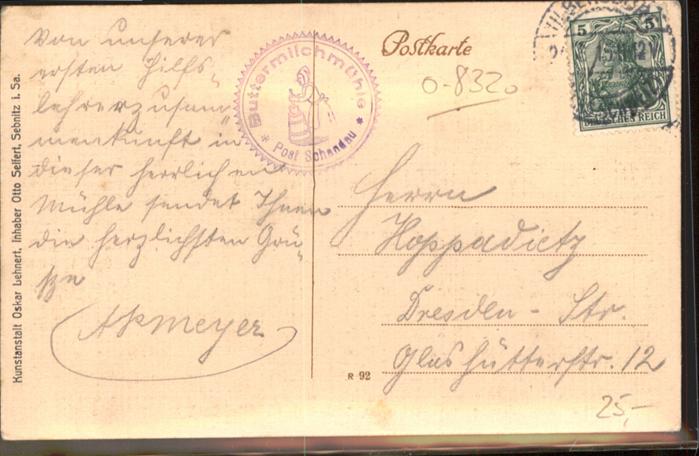 Von unserer
ersten Hilfs-
lehrerzusam
menkunft in
dieser herrlichen
Mühle sendet Ihnen
die herzlichsten Grü-
sze
Buttermilchmühle
* Post Schandau *
Postkarte
0-8320
5 5
DEUTSCHES REICH
Herrn
Hoppadietz
Dresden - Str.
Glashütterstr. 12
R 92
25,-
Kunstanstalt Oskar Lehnert, Inhaber Otto Seifert, Sebnitz i. Sa.